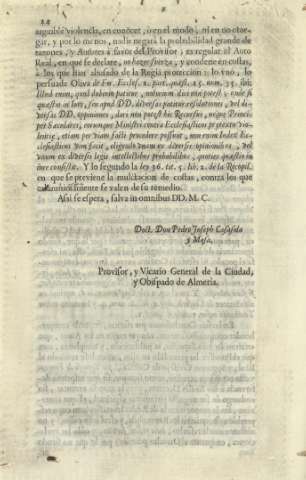 24
arguible violencia, en conocer, ò en el modo, ni en no otor-
gar, y por lo menos, nadie negarà la probabilidad grande de
razones, y Autores à favor del Provisor; es regular el Auto
Real, en que se declare, no hazer fuerza, y condene en costas,
à los que han abusado de la Regia proteccion: lo uno, lo
persuade Olava de Em. Eccles. 1. part. quæst. 15. num. 35. ibi:
Illud enim, quod dubium patitur, notorium dici non potest; unde si
quæstio in Iure, seu apud DD. diversas patitur resolutiones, vel di-
versas DD. opiniones, dari non potest hic Recursus, neque Princi-
pes Seculares, eorumque Ministri contra Ecclesiasticos prætextu vio-
lentiæ, etiam per viam facti procedere possunt, non enim Iudex Ec-
clesiasticus vim facit, eligendo unam ex diversis opinionibus, vel
unum ex diversis legis intellectibus probabilibus, quoties quæstio in
iure consistit. Y lo segundo la ley 36. tit. 5. lib. 2. de la Recopil.
en que se previene la multacion de costas, contra los que
se valen de su remedio.
Assi se espera, salva in omnibus DD. M. C.
Doct. Don Pedro Joseph
y Mesa,
Provisor, y Vicario General de la Ciudad,
y Obispado de Almeria.